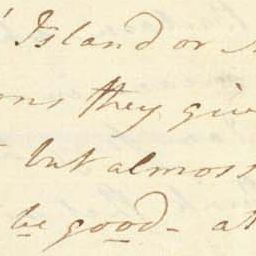 Island or
ons they giv
but almoss
be good - at